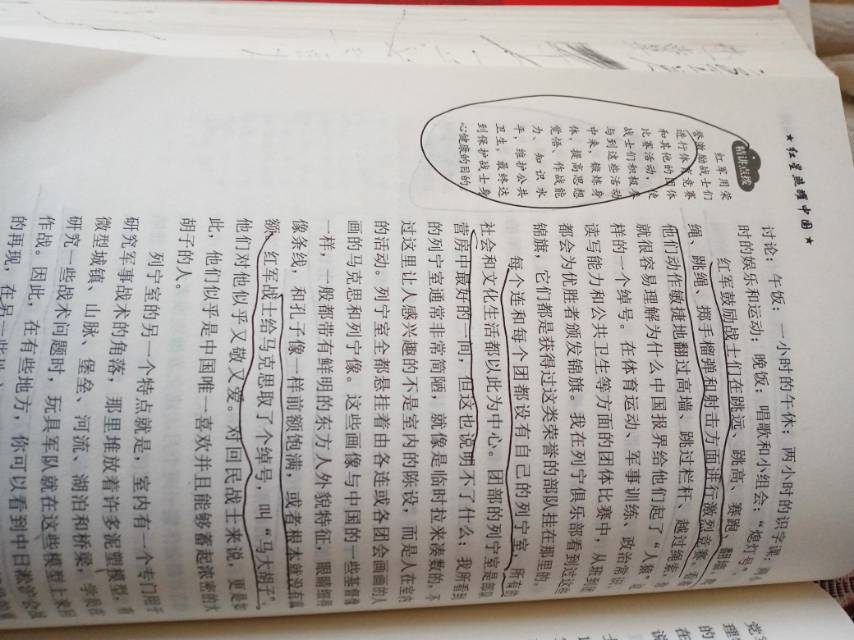 ★ 红星照耀中国 ★
精讲点拨
红军用荣
誉激励战士们
进行体育竞赛
和其他的团体
比赛活动，使
战士们积极参
与到这些活动
中来，锻炼身
体，提高思想
觉悟、作战能
力、知识水
平，维护公共
卫生，最终达
到保护战士身
心健康的目的。
讨论；午饭；一小时的午休；两小时的识字课；两小
时的娱乐和运动；晚饭；唱歌和小组会；“熄灯号”。
红军鼓励战士们在跳远、跳高、赛跑、翻墙、
绳、跳绳、掷手榴弹和射击方面进行激烈竞赛。看
他们动作敏捷地翻过高墙、跳过栏杆、越过绳索，
就很容易理解为什么中国报界给他们起了“人猿”
样的一个绰号。在体育运动、军事训练、政治常识、
读写能力和公共卫生等方面的团体比赛中，从班到
都会为优胜者颁发锦旗。我在列宁俱乐部看到过这些
锦旗，它们都是获得过这类荣誉的部队挂在那里的。
每个连和每个团都设有自己的列宁室，所有
社会和文化生活都以此为中心。团部的列宁室是部队
营房中最好的一间，但这也说明不了什么，我所看到
的列宁室通常非常简陋，就像是临时拉来凑数的。不
过这里让人感兴趣的不是室内的陈设，而是人在室内
的活动。列宁室全都悬挂着由各连或各团会画画的人
画的马克思和列宁像。这些画像与中国的一些基督像
一样，一般都带有鲜明的东方人外貌特征，眼睛细得
像条线，和孔子像一样前额饱满，或者根本就没有前
额。红军战士给马克思取了个绰号，叫“马大胡子”。
他们对他似乎又敬又爱。对回民战士来说，更是如
此，他们似乎是中国唯一喜欢并且能够蓄起浓密的大
胡子的人。
列宁室的另一个特点就是，室内有一个专门用于
研究军事战术的角落，那里堆放着许多泥塑模型，有
微型城镇、山脉、堡垒、河流、湖泊和桥梁。学员们
研究一些战术问题时，玩具军队就在这些模型上来回
作战。因此，在有些地方，你可以看到中日淞沪会战
的再现，在另一些地